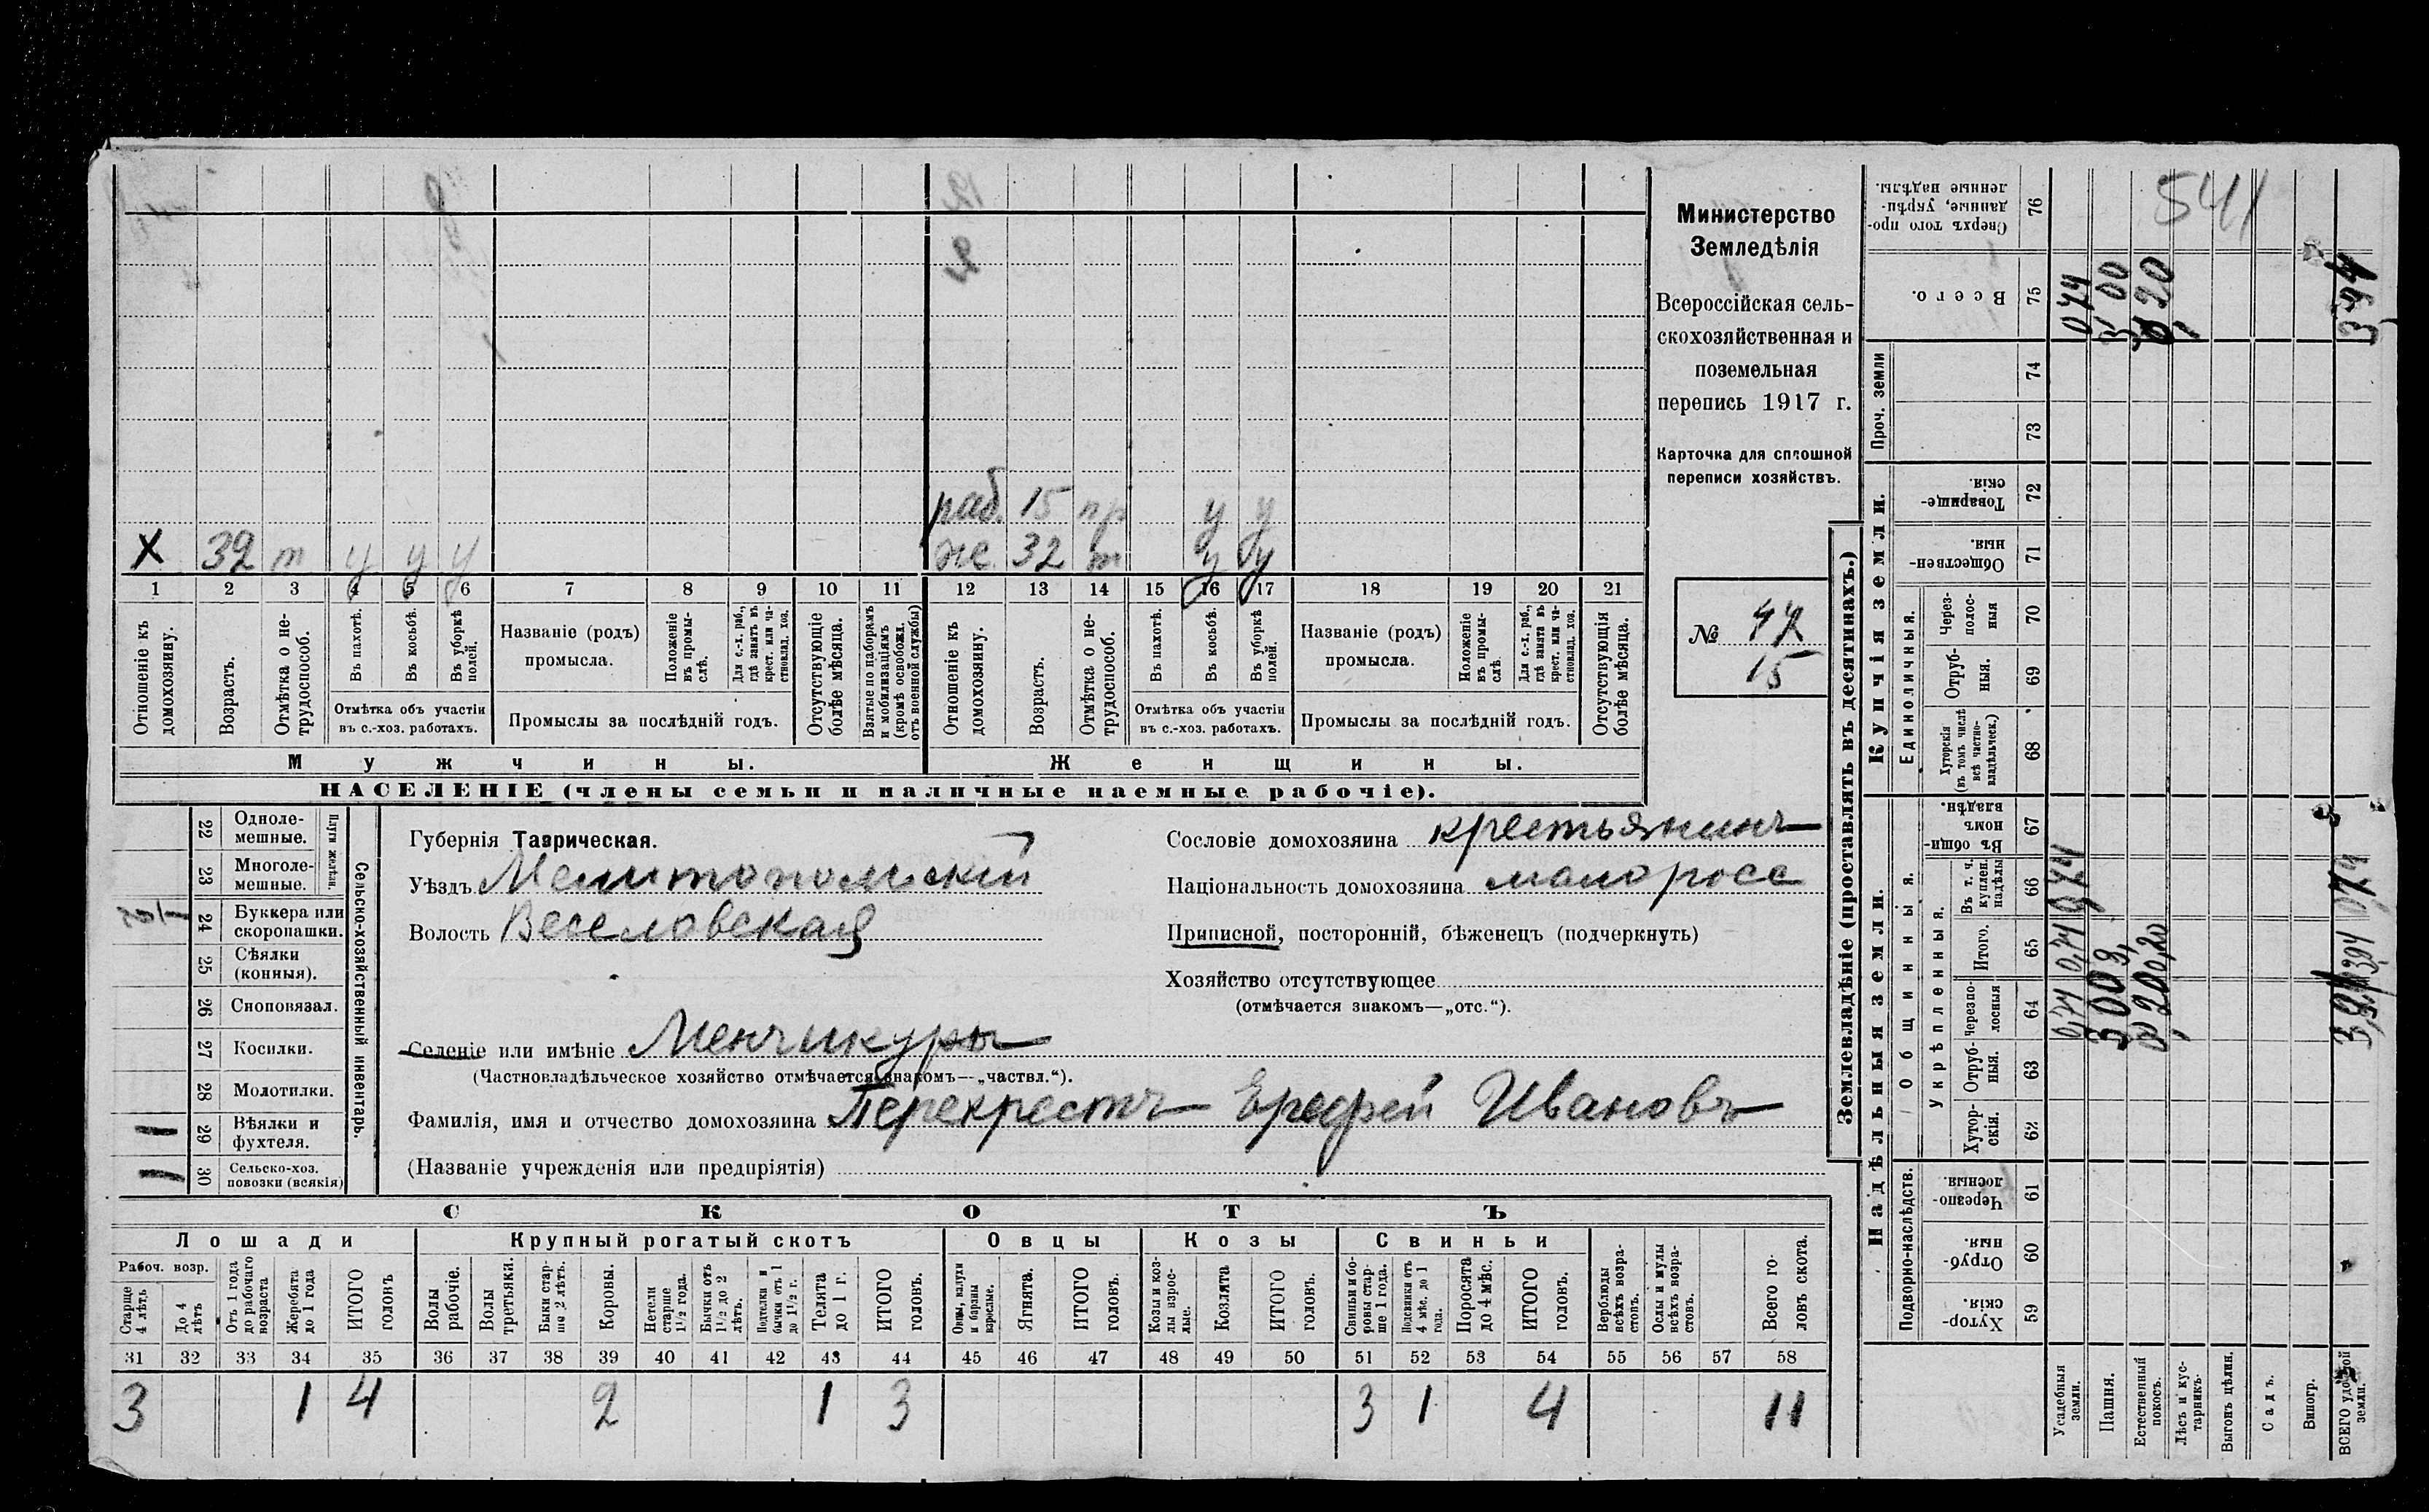 Министерство
Земледѣлія
Всероссійская сель-
скохозяйственная и
поземельная
перепись 1917 г.
Карточка для сплошной
переписи хозяйствъ.
№ 47
15
раб. 15 пр у у
X 39 т у у у
же. 32 т у у
1 2 3 4 5 6 7 8 9 10 11 12 13 14 15 16 17 18 19 20 21
Отношеніе къ домохозяину.
Возрастъ.
Отмѣтка о не-трудоспособ.
Въ пахотѣ.
Въ косьбѣ.
Въ уборкѣ полей.
Отмѣтка объ участіи
въ с.-хоз. работахъ.
Названіе (родъ)
промысла.
Положеніе въ промы-слѣ.
Для с.-х. раб., гдѣ занятъ въ крест. или ча-стновлад. хоз.
Промыслы за послѣдній годъ.
Отсутствующіе болѣе мѣсяца.
Взятые по наборамъ и мобилизаціямъ (кромѣ освобожд. отъ военной службы)
Отношеніе къ домохозяину.
Возрастъ.
Отмѣтка о не-трудоспособ.
Въ пахотѣ.
Въ косьбѣ.
Въ уборкѣ полей.
Отмѣтка объ участіи
въ с.-хоз. работахъ.
Названіе (родъ)
промысла.
Положеніе въ промы-слѣ.
Для с.-х. раб., гдѣ занята въ крест. или ча-стновлад. хоз.
Промыслы за послѣдній годъ.
Отсутствующія болѣе мѣсяца.
Мужчины.
Женщины.
НАСЕЛЕНІЕ (члены семьи и наличные наемные рабочіе).
Сельско-хозяйственный инвентарь.
Плуги желѣзн.
22 Одноле-мешные.
23 Многоле-мешные.
24 Буккера или скоропашки.
25 Сѣялки (конныя).
26 Сноповязал.
27 Косилки.
28 Молотилки.
29 Вѣялки и фухтеля. 1
30 Сельско-хоз. повозки (всякія) 1
Губернія Таврическая.
Уѣздъ Мелитопольскій
Волость Веселовская
Сословіе домохозяина крестьянинъ
Національность домохозяина малоросс
Приписной, посторонній, бѣженецъ (подчеркнуть)
Хозяйство отсутствующее
(отмѣчается знакомъ—„отс.“).
Селеніе или имѣніе Менчикуры
(Частновладѣльческое хозяйство отмѣчается знакомъ—„частвл.“).
Фамилія, имя и отчество домохозяина Перехрестъ Ерофей Ивановъ
(Названіе учрежденія или предпріятія)
СКОТЪ
Лошади
Крупный рогатый скотъ
Овцы
Козы
Свиньи
Рабоч. возр.
Старше 4 лѣтъ
До 4 лѣтъ
Отъ 1 года до рабочаго возраста
Жеребята до 1 года
ИТОГО головъ
Волы рабочіе.
Волы третьяки.
Быки стар-ше 2 лѣтъ.
Коровы.
Нетели старше 1½ года.
Бычки отъ 1½ до 2 лѣтъ.
Подтелки и бычки отъ 1 до 1½ г.
Телята до 1 г.
ИТОГО головъ.
Овцы, валухи и бараны взрослые.
Ягнята.
ИТОГО головъ.
Козы и коз-лы взрос-лые.
Козлята
ИТОГО головъ.
Свиньи и бо-ровы стар-ше 1 года.
Подсвинки отъ 4 мѣс. до 1 года.
Поросята до 4 мѣс.
ИТОГО головъ.
Верблюды всѣхъ возра-стовъ.
Ослы и мулы всѣхъ возра-стовъ.
Всего го-ловъ скота.
31 32 33 34 35 36 37 38 39 40 41 42 43 44 45 46 47 48 49 50 51 52 53 54 55 56 57 58
3 1 4 2 1 3 3 1 4 11
Землевладѣніе (проставлять въ десятинахъ.)
Надѣльныя земли.
Купчія земли.
Проч. земли
Подворно-наслѣдств.
Общинныя.
Укрѣпленныя.
Единоличныя.
Хутор-скія. 59
Отруб-ныя. 60
Черезпо-лосныя. 61
Хутор-скія. 62
Отруб-ныя. 63
Черезпо-лосныя 64
Итого. 65
Въ т. ч. куплен. надѣлы 66
Въ общи-номъ владѣн. 67
Хуторскія (въ томъ числѣ всѣ частно-владѣльческ.) 68
Отруб-ныя. 69
Через-полос-ныя 70
Обществен-ныя. 71
Товарище-скія. 72
73
74
Всего. 75
Сверхъ того про-данные, укрѣп-ленные надѣлы. 76
541
Усадебныя земли.
Пашня.
Естественный покосъ.
Лѣсъ и кус-тарникъ.
Выгонъ цѣлин.
Садъ.
Виногр.
ВСЕГО удобной земли.